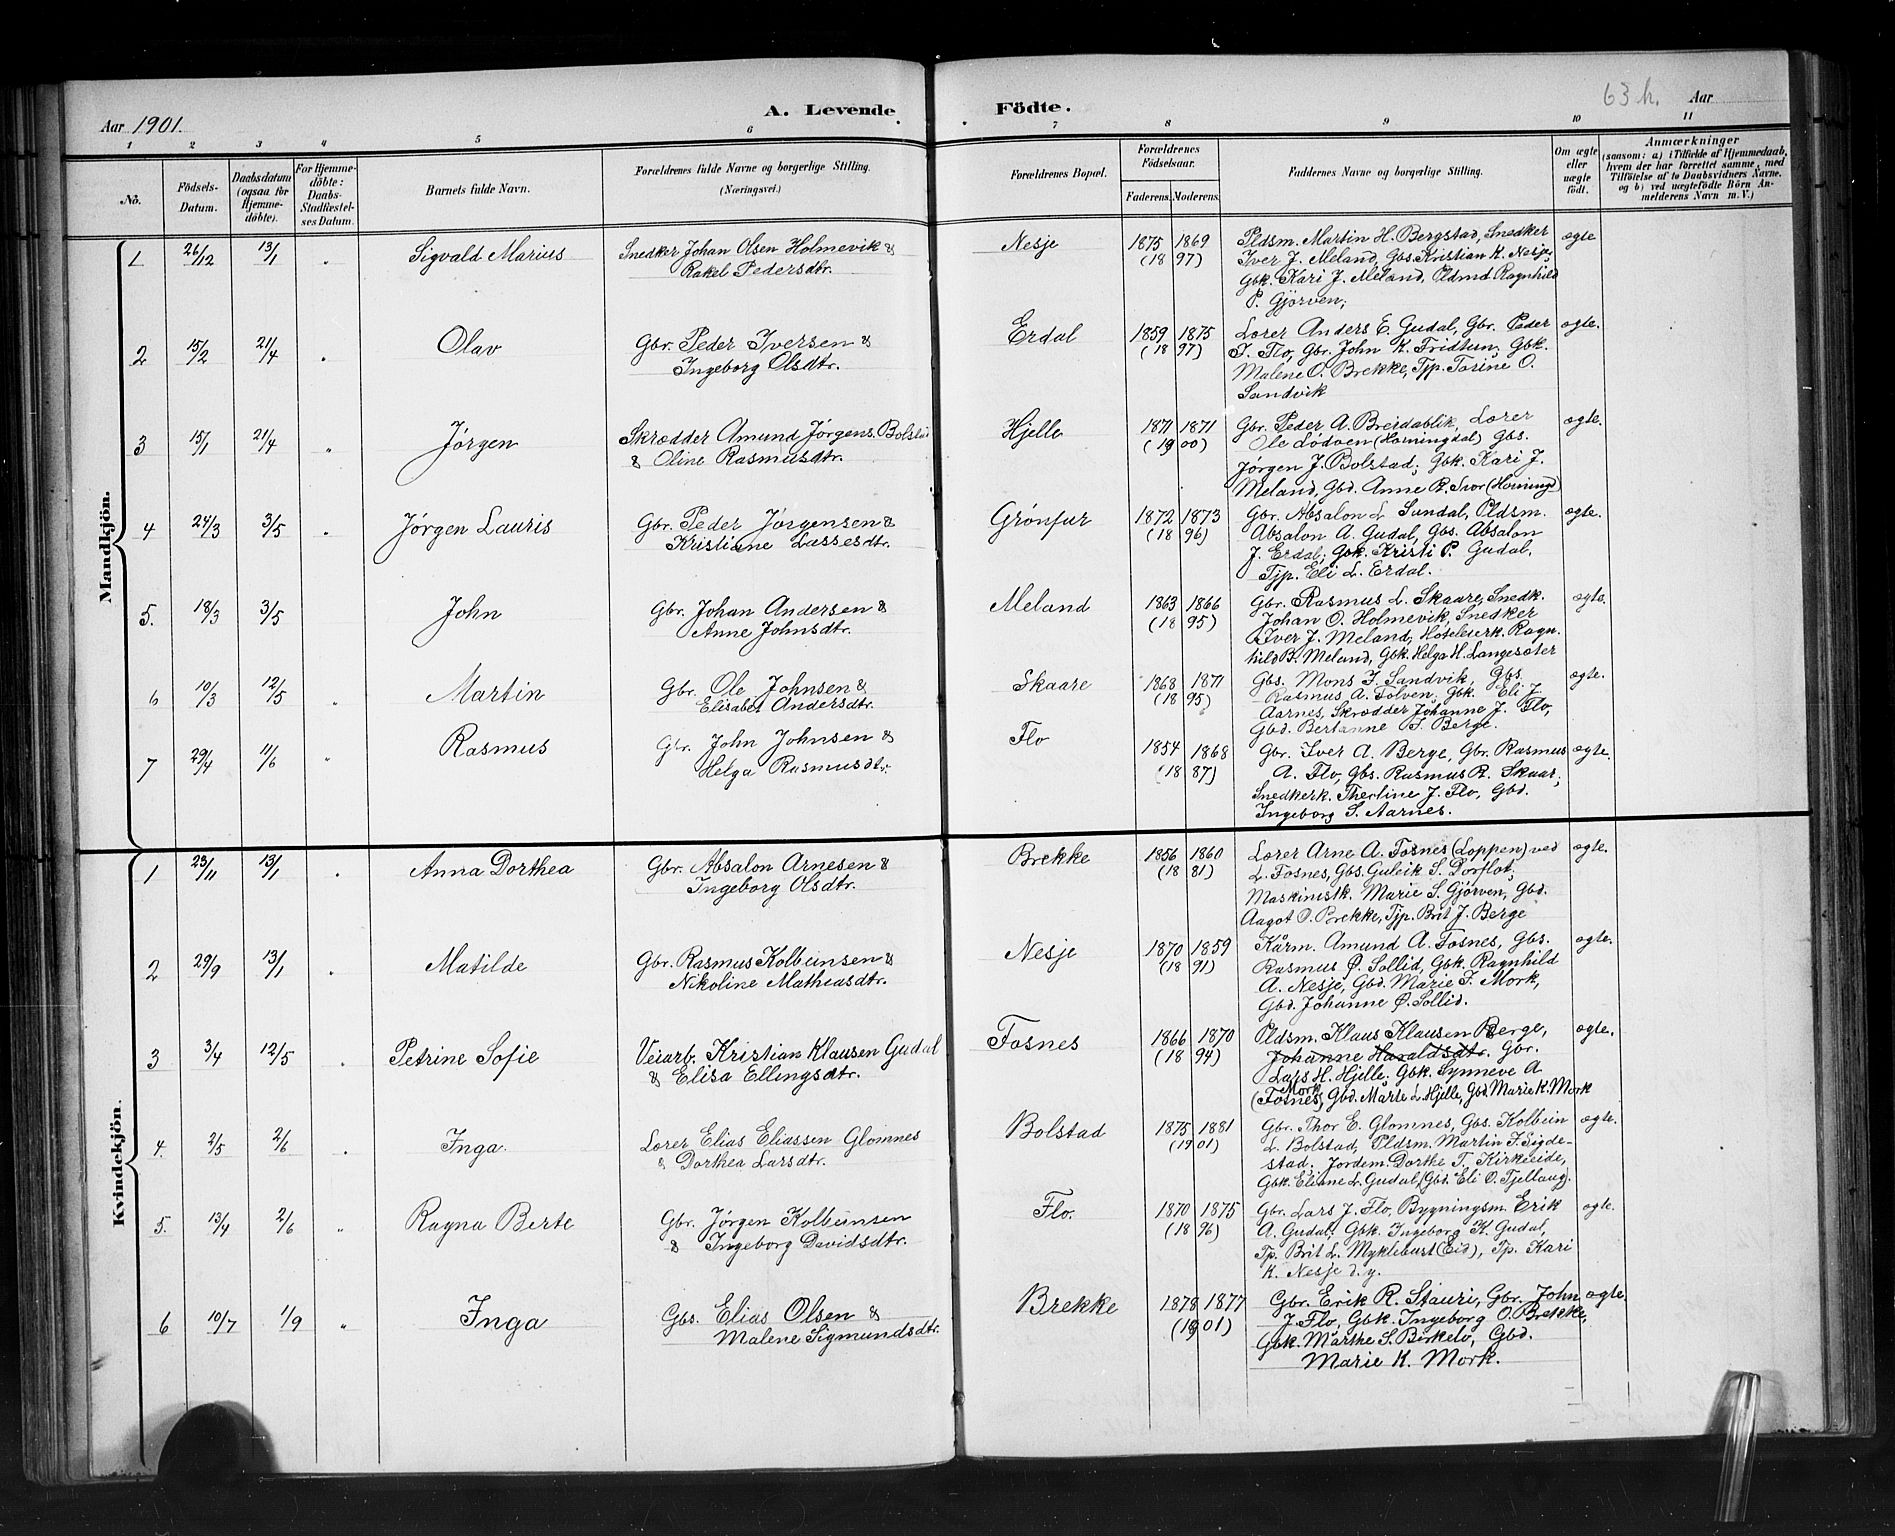 Aar 1901.
A. Levende Födte.
63 h. Aar
1 2 3 4 5 6 7 8 9 10 11
No.
Födsels-Datum.
Daabsdatum (ogsaa for Hjemme-döbte).
For Hjemme-döbte: Daabs-Stadfæstel-ses Datum.
Barnets fulde Navn.
Forældrenes fulde Navne og borgerlige Stilling.
(Næringsvei.)
Forældrenes Bopæl.
Forældrenes Födselsaar.
Faderens. Moderens.
Faddernes Navne og borgerlige Stilling.
Om ægte eller uægte födt.
Anmærkninger
(saasom: a) i Tilfælde af Hjemmedaab, hvem der har forrettet samme, med Tilföielse af to Daabsvidners Navne. og b) ved uægtefödte Börn An-melderens Navn m. V.)
Mandkjön.
1 26/12 13/1 " Sigvald Marius Snedker Johan Olsen Holmevik & Nesje 1875 1869 Pldsm. Martin H. Bergstad, Snedker ægte
Rakel Pedersdtr. (18 97) Iver J. Meland, Gbs Kristian K. Nesje;
Gbk. Kari J. Meland, Pldmd Ragnhild
P. Gjörven;
2 15/2 21/4 " Olav Gbr. Peder Iversen & Erdal 1859 1875 Lærer Anders E. Gudal, Gbr. Peder ægte.
Ingeborg Olsdtr. (18 97) J. Flo, Gbr. John K. Fridtun, Gbk.
Malene O. Brekke, Tjp. Tosine O.
Sandvik
3 15/1 21/4 " Jörgen Skrædder Amund Jörgens. Hjelle 1871 1871 Gbr. Peder A. Breidablik, Lærer ægte.
& Oline Rasmusdtr. (19 00) Ole Lödöen (Horningdal) Gbs.
Jörgen J. Bolstad; Gbk. Kari J.
Meland, Gbd. Anne R. Svor (Horningd)
4 24/3 3/5 " Jörgen Lauris Gbr. Peder Jörgensen & Grönfur 1872 1873 Gbr. Absalon L. Sundal, Pldsm. ægte.
Kristiane Lassesdtr. (18 96) Absalon A. Gudal, Gbs. Absalon
J. Erdal; Gbk. Kristi P. Gudal,
Tjp. Eli L. Erdal.
5. 18/3 3/5 John Gbr. Johan Andersen & Meland 1863 1866 Gbr. Rasmus L. Skaare, Snedk. ægte.
Anne Johnsdtr. (18 95) Johan O. Holmevik, Snedker
Iver J. Meland, Hoteleierk. Ragn-
hild B. Meland, Gbk. Helga H. Langesæter
6 10/3 12/5 " Martin Gbr. Ole Johnsen & Skaare 1868 1871 Gbs. Mons J. Sandvik, Gbs. ægte.
Elisabet Andersdtr. (18 95) Rasmus A. Tolven, Gbk. Eli J.
Aarnes, Skrædder Johanne J. Flo,
Gbd. Bertanne S. Berge.
7 29/4 11/6 " Rasmus Gbr. John Johnsen & Flo 1854 1868 Gbr. Iver A. Berge, Gbr. Rasmus ægte.
Helga Rasmusdtr. (18 87) A. Flo, Gbs. Rasmus R. Skaar;
Snedkerk. Therline J. Flo, Gbd.
Ingeborg S. Aarnes.
Kvindekjön.
1 23/11 13/1 " Anna Dorthea Gbr. Absalon Arnesen & Brekke 1856 1860 Lærer Arne A. Fosnes (Loppen) ved ægte.
Ingeborg Olsdtr. (18 81) L. Fosnes, Gbs. Guleik S. Dorflot;
Maskinistk. Marie S. Gjörven, Gbd.
Aagot O. Brekke, Tjp. Brit J. Berge
2 29/9 13/1 " Matilde Gbr. Rasmus Kolbeinsen & Nesje 1870 1859 Kårm. Amund A. Fosnes, Gbs. ægte.
Nikoline Mathiasdtr. (18 91) Rasmus Ø. Sollid, Gbk. Ragnhild
A. Nesje, Gbd. Marie J. Mork,
Gbd. Johanne Ø. Sollid.
3 3/4 12/5 " Petrine Sofie Veiarb. Kristian Klausen Gudal Fosnes 1866 1870 Pldsm. Klaus Klausen Berge, ægte.
& Elisa Ellingsdtr. (18 94) Johanne Haraldsdtr. Gbr.
Lars H. Hjelle; Gbk. Synneve A
Mork
(Fosnes) Gbd. Marte L. Hjelle, Gbd. Marie K. Mork
4. 2/5 2/6 " Inga. Lærer Elias Eliassen Glomnes Bolstad 1875 1881 Gbr. Thor E. Glomnes, Gbs. Kolbein ægte.
& Dorthea Larsdtr. (19 01) L. Bolstad, Pldsm. Martin J. Sigde-
stad; Jordem. Dorthe T. Kirkeeide,
Gbk. Eliane L. Gudal, (Gbd. Eli O. Tjellaug).
5. 13/4 2/6 " Ragna Berte Gbr. Jörgen Kolbeinsen Flo. 1870 1875 Gbr. Lars J. Flo, Bygningsm. Erik ægte.
& Ingeborg Davidsdtr. (18 96) A. Gudal; Gbk. Ingeborg K. Gudal,
Tp. Brit L. Myklebust (Eid), Tp. Kari
K. Nesje d.y.
6 10/7 1/9 " Inga Gbs. Elias Olsen & Brekke 1878 1877 Gbr. Erik R. Stauri, Gbr. John ægte.
Malene Sigmundsdtr. (19 01) J. Flo, Gbk. Ingeborg O. Brekke,
Gbk. Marthe S. Birkelo, Gbd.
Marie K. Mork.